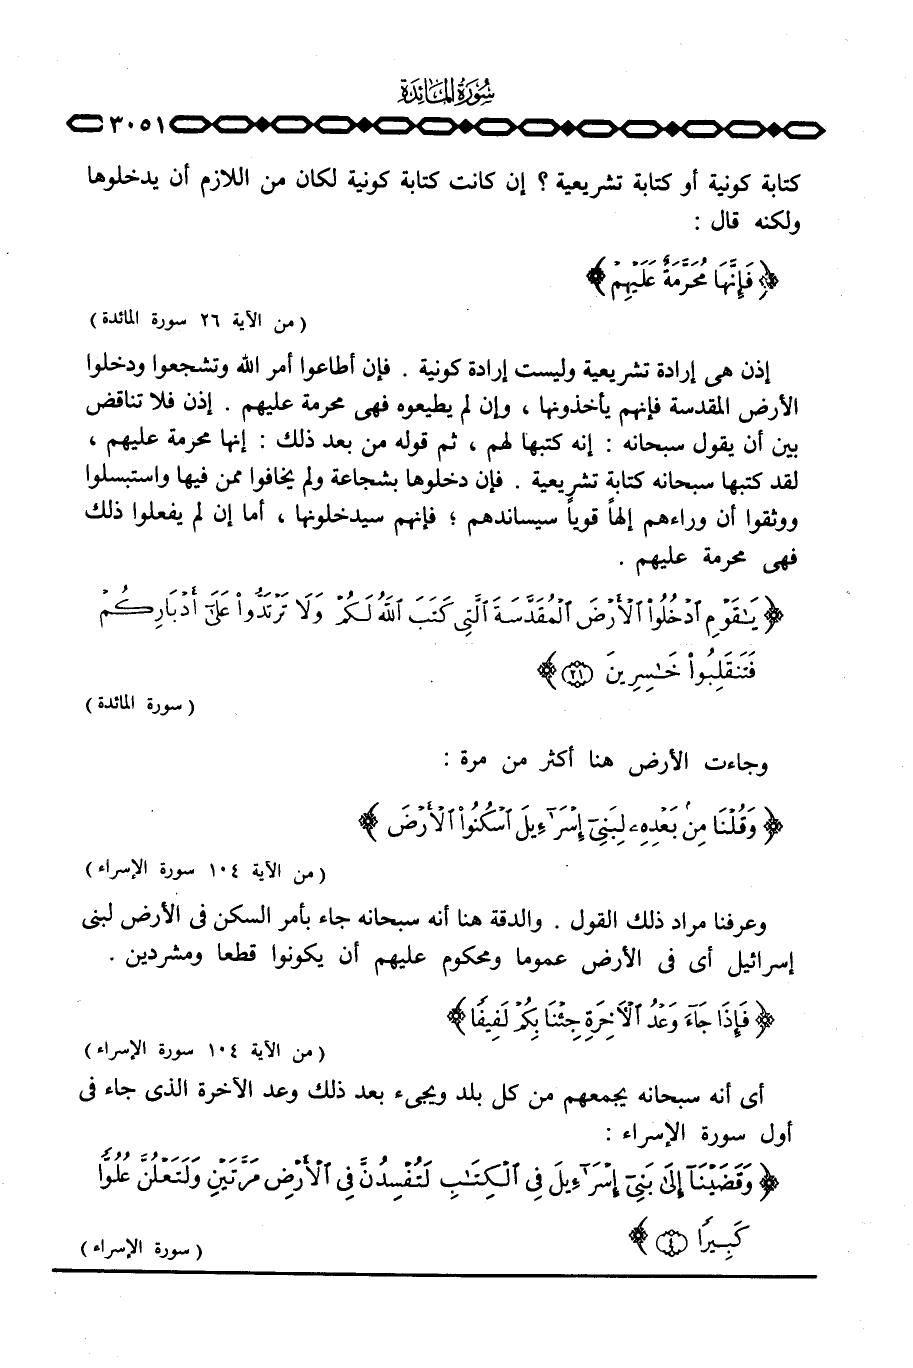 سُورَةُ المَائِدَة
٣٠٥١
كتابة كونية أو كتابة تشريعية ؟ إن كانت كتابة كونية لكان من اللازم أن يدخلوها
ولكنه قال :
﴿ فَإِنَّهَا مُحَرَّمَةٌ عَلَيْهِمْ ﴾
( من الآية ٢٦ سورة المائدة )
إذن هى إرادة تشريعية وليست إرادة كونية . فإن أطاعوا أمر الله وتشجعوا ودخلوا
الأرض المقدسة فإنهم يأخذونها ، وإن لم يطيعوه فهى محرمة عليهم . إذن فلا تناقض
بين أن يقول سبحانه : إنه كتبها لهم ، ثم قوله من بعد ذلك : إنها محرمة عليهم ،
لقد كتبها سبحانه كتابة تشريعية . فإن دخلوها بشجاعة ولم يخافوا ممن فيها واستبسلوا
ووثقوا أن وراءهم إلهاً قوياً سيساندهم ؛ فإنهم سيدخلونها ، أما إن لم يفعلوا ذلك
فهى محرمة عليهم .
﴿ يَٰقَوْمِ ٱدْخُلُوا۟ ٱلْأَرْضَ ٱلْمُقَدَّسَةَ ٱلَّتِى كَتَبَ ٱللَّهُ لَكُمْ وَلَا تَرْتَدُّوا۟ عَلَىٰٓ أَدْبَارِكُمْ
فَتَنقَلِبُوا۟ خَٰسِرِينَ ﴿٢١﴾ ﴾
( سورة المائدة )
وجاءت الأرض هنا أكثر من مرة :
﴿ وَقُلْنَا مِنۢ بَعْدِهِۦ لِبَنِىٓ إِسْرَٰٓءِيلَ ٱسْكُنُوا۟ ٱلْأَرْضَ ﴾
( من الآية ١٠٤ سورة الإسراء )
وعرفنا مراد ذلك القول . والدقة هنا أنه سبحانه جاء بأمر السكن فى الأرض لبنى
إسرائيل أى فى الأرض عموما ومحكوم عليهم أن يكونوا قطعا ومشردين .
﴿ فَإِذَا جَآءَ وَعْدُ ٱلْآخِرَةِ جِئْنَا بِكُمْ لَفِيفًا ﴾
( من الآية ١٠٤ سورة الإسراء )
أى أنه سبحانه يجمعهم من كل بلد ويجىء بعد ذلك وعد الآخرة الذى جاء فى
أول سورة الإسراء :
﴿ وَقَضَيْنَآ إِلَىٰ بَنِىٓ إِسْرَٰٓءِيلَ فِى ٱلْكِتَٰبِ لَتُفْسِدُنَّ فِى ٱلْأَرْضِ مَرَّتَيْنِ وَلَتَعْلُنَّ عُلُوًّا
كَبِيرًا ﴿٤﴾ ﴾
( سورة الإسراء )